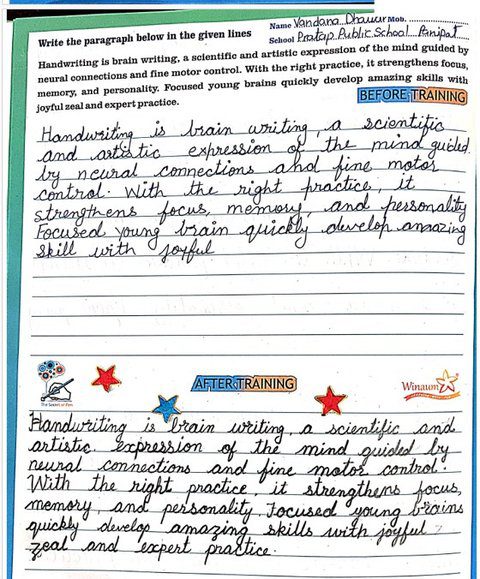 Name Vandana Dhawan Mob.
Write the paragraph below in the given lines
School Pratap Public School Panipat
Handwriting is brain writing, a scientific and artistic expression of the mind guided by
neural connections and fine motor control. With the right practice, it strengthens focus,
memory, and personality. Focused young brains quickly develop amazing skills with
joyful zeal and expert practice.
BEFORE TRAINING
Handwriting is brain writing, a scientific
and artistic expression of the mind guided
by neural connections and fine motor
control. With the right practice, it
strengthens focus, memory, and personality
Focused young brain quickly develop amazing
skill with joyful
AFTER TRAINING
The Secret of Pen
Winaum
Handwriting is brain writing, a scientific and
artistic expression of the mind guided by
neural connections and fine motor control.
With the right practice, it strengthens focus,
memory, and personality. Focused young brains
quickly develop amazing skills with joyful
zeal and expert practice.